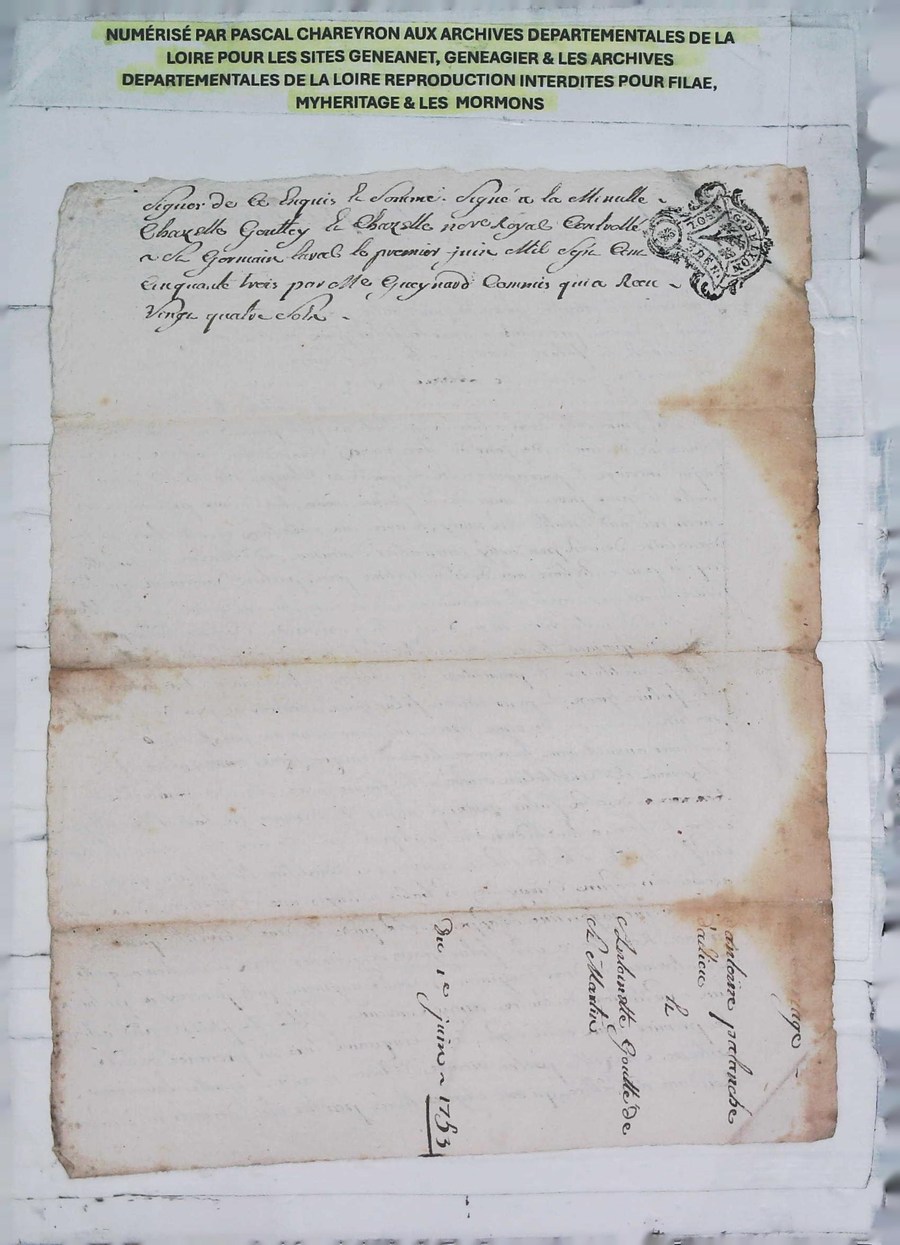 NUMÉRISÉ PAR PASCAL CHAREYRON AUX ARCHIVES DEPARTEMENTALES DE LA
LOIRE POUR LES SITES GENEANET, GENEAGIER & LES ARCHIVES
DEPARTEMENTALES DE LA LOIRE REPRODUCTION INTERDITES POUR FILAE,
MYHERITAGE & LES MORMONS
signer de ce Enquis et Sommé. Signé a la Minutte
Chazelle Gouttey et Chazelle nore Royal Controllé
a St Germain laval le premier juin Mil Sept Cent
Cinquante trois par Me Gueynard Commis qui a Receu
Vingt quatre Sols
G. DE LYON
DEN.
antoine palanche
dalieu
et
Antoinette Goutte de
St Martin
Du 1e juin 1753